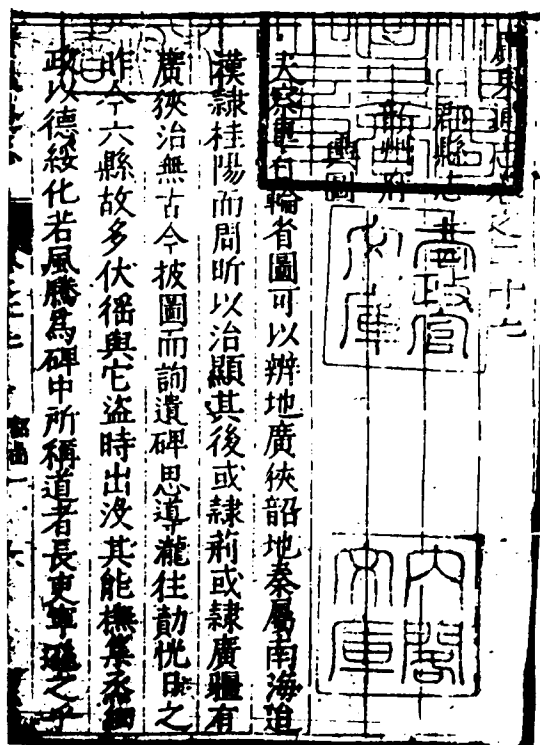 廣東通志卷之二十七
郡縣志
韶州府
輿圖
夫察車輪省圖可以辨地廣狹韶地秦屬南海迨
漢隸桂陽而昕以治顯其後或隸荊或隸廣疆有
廣狹治無古今披圖而詢遺碑思導瀧往勣恍日之
昨今六縣故多伏徭與它盜時出沒其能撫集
政以德綏化若風騰為碑中所稱道者長吏寧遜之乎
太政官文庫
內閣文庫